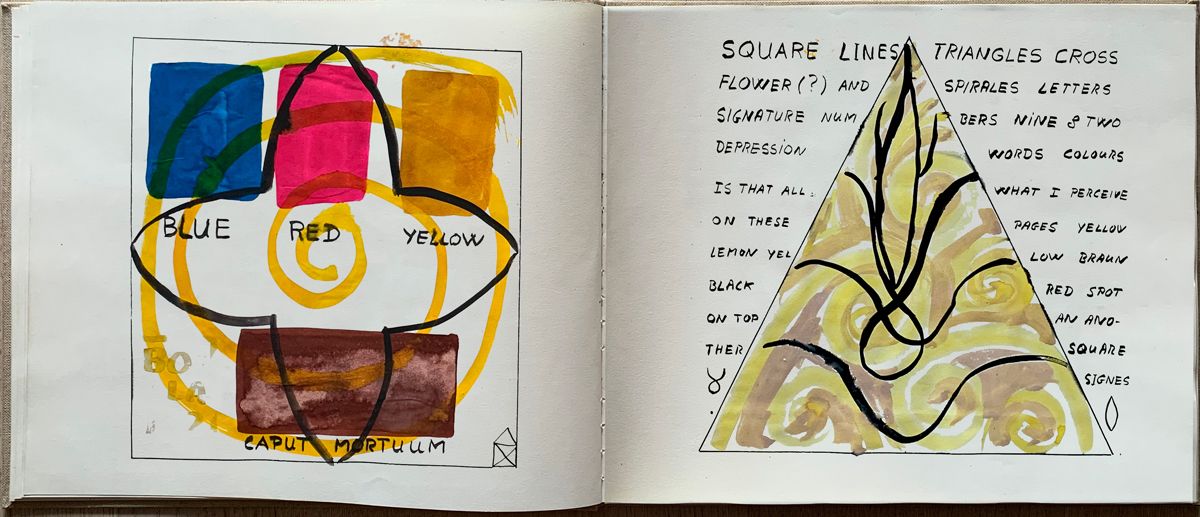 BLUE RED YELLOW
CAPUT MORTUUM
SQUARE LINES TRIANGLES CROSS
FLOWER (?) AND SPIRALES LETTERS
SIGNATURE NUM BERS NINE & TWO
DEPRESSION WORDS COLOURS
IS THAT ALL WHAT I PERCEIVE
ON THESE PAGES YELLOW
LEMON YEL LOW BRAUN
BLACK RED SPOT
ON TOP AN ANO-
THER SQUARE
SIGNES